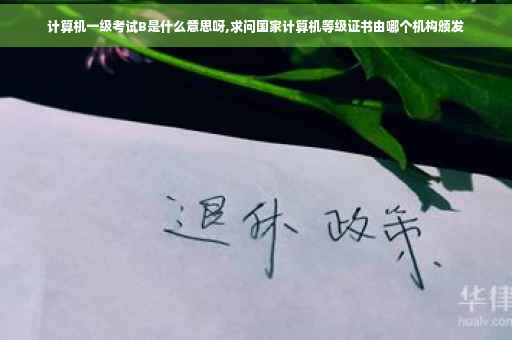 计算机一级考试B是什么意思呀,求问国家计算机等级证书由哪个机构颁发
退休 政策
华律
hualv.com